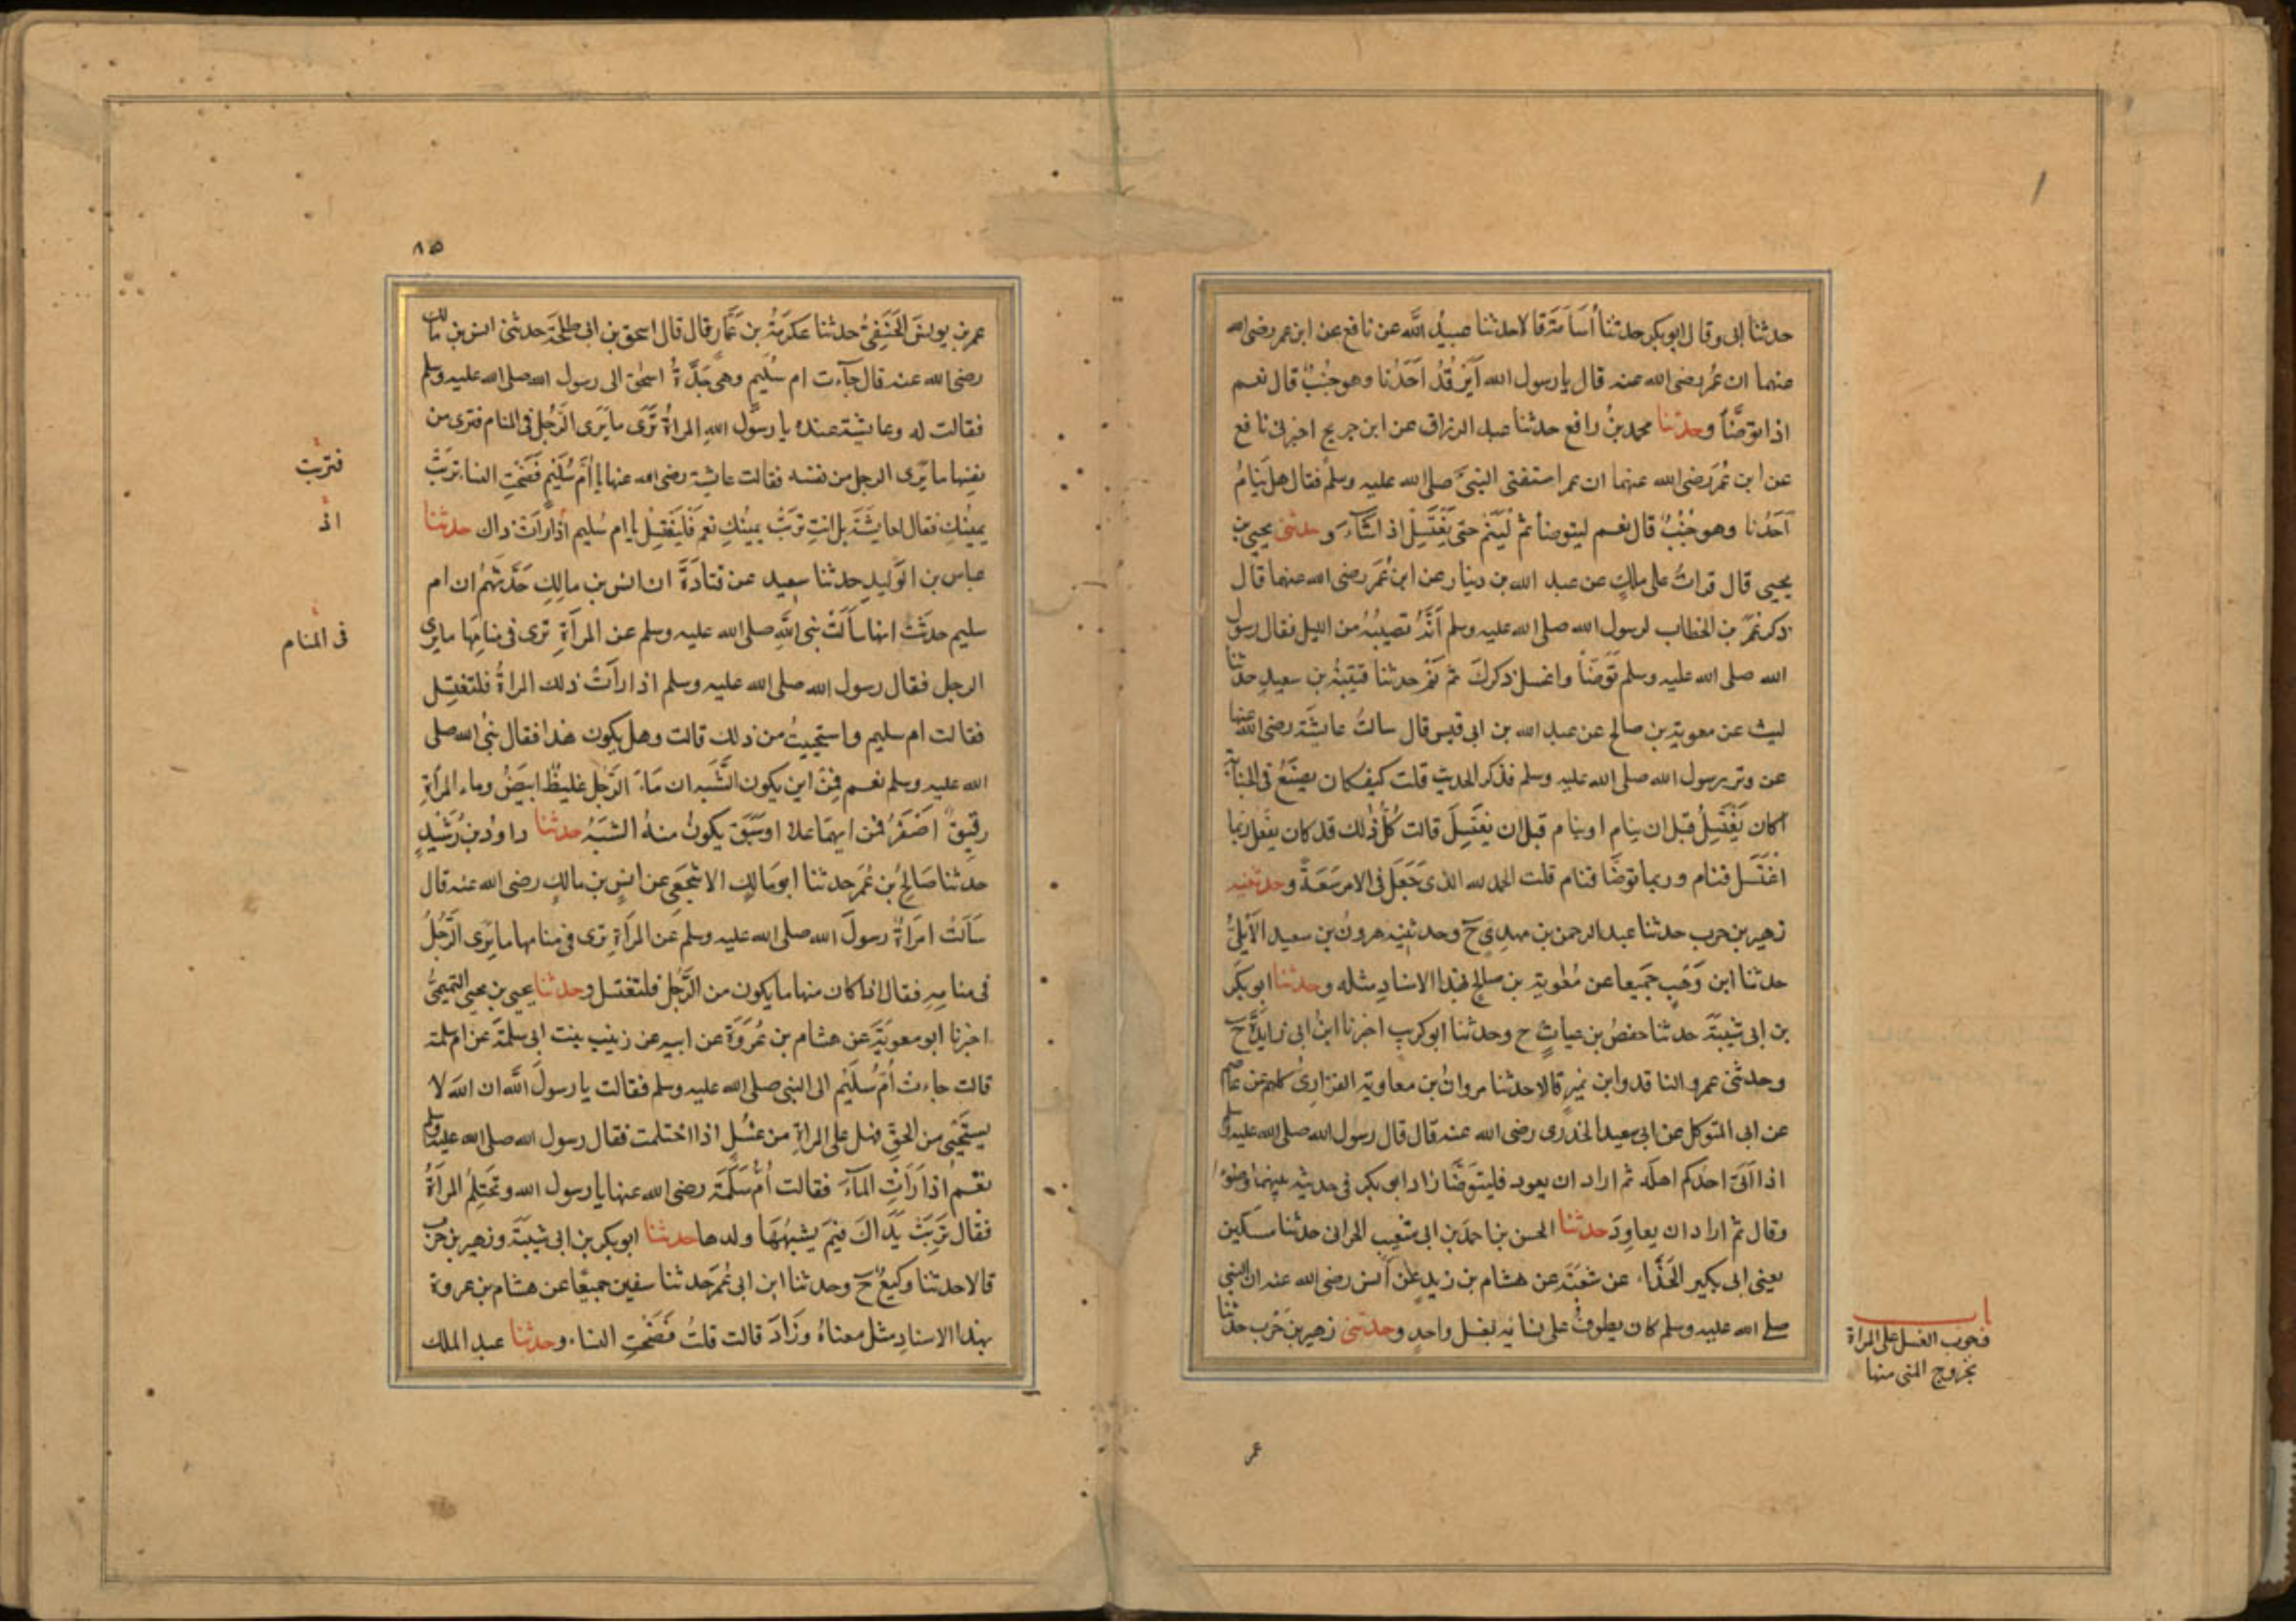 حدثنا ابى وقال ابو بكر حدثنا أسَامَة قالا حدثنا عبيدُ الله عن نافع عن ابن عمر رضى الله
عنهما ان عُمَر رضى الله عنه قال يا رسول الله أيَرْقُدُ أحَدُنا وهو جُنُبٌ قال نعم
اذا توضَّأَ وحدثنا محمد بنُ رافع حدثنا عبد الرزاق عن ابن جريج اخبرنى نافع
عن ابن عُمَرَ رضى الله عنهما ان عمر استفتى النبىَّ صلى الله عليه وسلم فقال هل يَنَامُ
أحَدُنا وهو جُنُبٌ قال نعم ليتوضأ ثم لْيَنَمْ حتى يَغْتَسِلَ اذا شَآءَ وحدثنى يحيى بن
يحيى قال قرأتُ على مالكٍ عن عبد الله بن دينار عن ابن عُمَرَ رضى الله عنهما قال
ذكر عُمَرُ بن الخطاب لرسول الله صلى الله عليه وسلم أنَّهُ تصيبُهُ من الليل فقال رسول
الله صلى الله عليه وسلم تَوَضَّأْ واغسل ذكركَ ثم نَمْ حدثنا قتيبَةُ بن سعيدٍ حدثنا
ليث عن معوية بن صالح عن عبد الله بن ابى قيس قال سالتُ عايشَة رضى الله عنها
عن وتر رسول الله صلى الله عليه وسلم فذكر الحديث قلت كيف كان يصنَعُ فى الجنابة
اكان يَغْتَسِلُ قبل ان ينام او ينام قبل ان يغتَسِلَ قالت كُلُّ ذلك قد كان يفعَل ربما
اغتَسَل فنام وربما توضَّا فنام قلت الحمد لله الذى جَعَلَ فى الامر سَعَةً وحدثنيه
زهير بن حرب حدثنا عبد الرحمن بن مهدِىّ ح وحدثنيه هرونُ بن سعيد الأيْلِىُّ
حدثنا ابن وَهْبٍ جَميعا عن مُعٰوية بن صالح بهذا الاسنادِ مثله وحدثنا ابو بكر
بن ابى شيبَةَ حدثنا حفصُ بن غياثٍ ح وحدثنا ابو كريب اخبرنا ابنُ ابى زايِدَةَ ح
وحدثنى عمرو الناقد وابن نميرٍ قالا حدثنا مروانُ بن معاوية الفزارِىُّ كلهم عن عاصم
عن ابى المتوكل عن ابى سعيد الخدرى رضى الله عنه قال قال رسول الله صلى الله عليه وسلم
اذا أتىَ احدُكم اهلَه ثم اراد ان يعود فليتَوَضَّأ زاد ابو بكر فى حديثه بينهما وضوُءا
وقال ثم اراد ان يعاوِدَ حدثنا الحسن بن احمدَ بن ابى شعيب الحرانى حدثنا مسكين
يعنى ابى بكير الحَذَّاء عن شعبَةَ عن هشام بن زيد عن أنس رضى الله عنه ان النبى
صلى الله عليه وسلم كان يطوفُ على نسائه بغسل واحدٍ وحدثنى زهير بن حَرْب حدثنا
باب
فى وجوب الغسل على المراة
بخروج المنى منها
عمر
٨٥
عمر بن يونسَ الحَنَفِىُّ حدثنا عكرمَةُ بن عَمَّار قال قال اسحق بن ابى طلحَة حدثنى انس بن مالك
رضى الله عنه قال جآءت ام سُلَيم وهى جَدَّةُ اسحٰق الى رسول الله صلى الله عليه وسلم
فقالت له وعايشة عنده يا رسولَ الله المراةُ تَرَى ما يَرَى الرَّجُل فى المنام فترى من
نفسِها ما يَرَى الرجل من نفسه فقالت عايشة رضى الله عنها يا أُمَّ سُلَيْمٍ فَضَحْتِ النساء تربَتْ
يمينُكِ فقال لعايشَةَ بل انتِ تربَتْ يمينُكِ نعم فَلْتَغْتَسِلْ يا ام سُليم اذا رَأتْ ذاك حدثنا
عباس بن الوَليدِ حدثنا سعيد عن قتادَةَ ان انس بن مالِكٍ حَدَّثهُمْ ان ام
سليم حدثَتْ انها سألَتْ نبى اللهِ صلى الله عليه وسلم عن المرأةِ ترى فى منامِهَا ما يرى
الرجل فقال رسول الله صلى الله عليه وسلم اذا رأتْ ذلك المراةُ فلتغتسِل
فقالت ام سليم واستحييتُ من ذلك قالت وهل يكون هٰذا فقال نبىُّ الله صلى
الله عليه وسلم نعم فمِن اين يكون الشَّبَه ان مَآءَ الرَّجُل غليظٌ ابيَضُ وماء المرأةِ
رقيقٌ اصْفَرُ فمن ايهما علا او سَبَق يكونُ منهُ الشبَهُ حدثنا داودُ بن رُشَيْدٍ
حدثنا صَالحُ بن عُمَر حدثنا ابو مَالكٍ الاشجَعى عن انسِ بن مالكٍ رضى الله عنه قال
سَألَتْ امرَاةٌ رسولَ الله صلى الله عليه وسلم عَن المرأةِ ترى فى منامها ما يَرَى الرَّجُلُ
فى منامِهِ فقال اذا كان منها ما يكون من الرَّجُل فلتغتسل وحدثنا يحيى بن يحيى التميمىُّ
اخبرنا ابو معوِيَةَ عن هشام بن عُرْوَةَ عن ابيه عن زينب بنت ابى سلمَة عن ام سلمة
قالت جاءت أُمّ سُلَيْم الى النبى صلى الله عليه وسلم فقالت يا رسولَ الله ان الله لا
يستَحْيِى من الحَقِّ فهل على المراةِ من غسْلٍ اذا احتلمت فقال رسول الله صلى الله عليه وسلم
نعم اذا رَأتِ المآءَ فقالت أُمُّ سَلَمَة رضى الله عنها يا رسول الله وتحتلِمُ المرأةُ
فقال تَرِبَتْ يَدَاكِ فبِمَ يشبهُهَا ولدها حدثنا ابو بكر بن ابى شيبَةَ وزهير بن حرب
قالا حدثنا وكيعٌ ح وحدثنا ابن ابى عُمَرَ حدثنا سفين جميعًا عن هشام بن عروة
بهذا الاسنادِ مثل معناهُ وزَادَ قالت قلتُ فَضَحْتِ النساء وحدثنا عبد الملك
فتربت
اذ
فى المنام